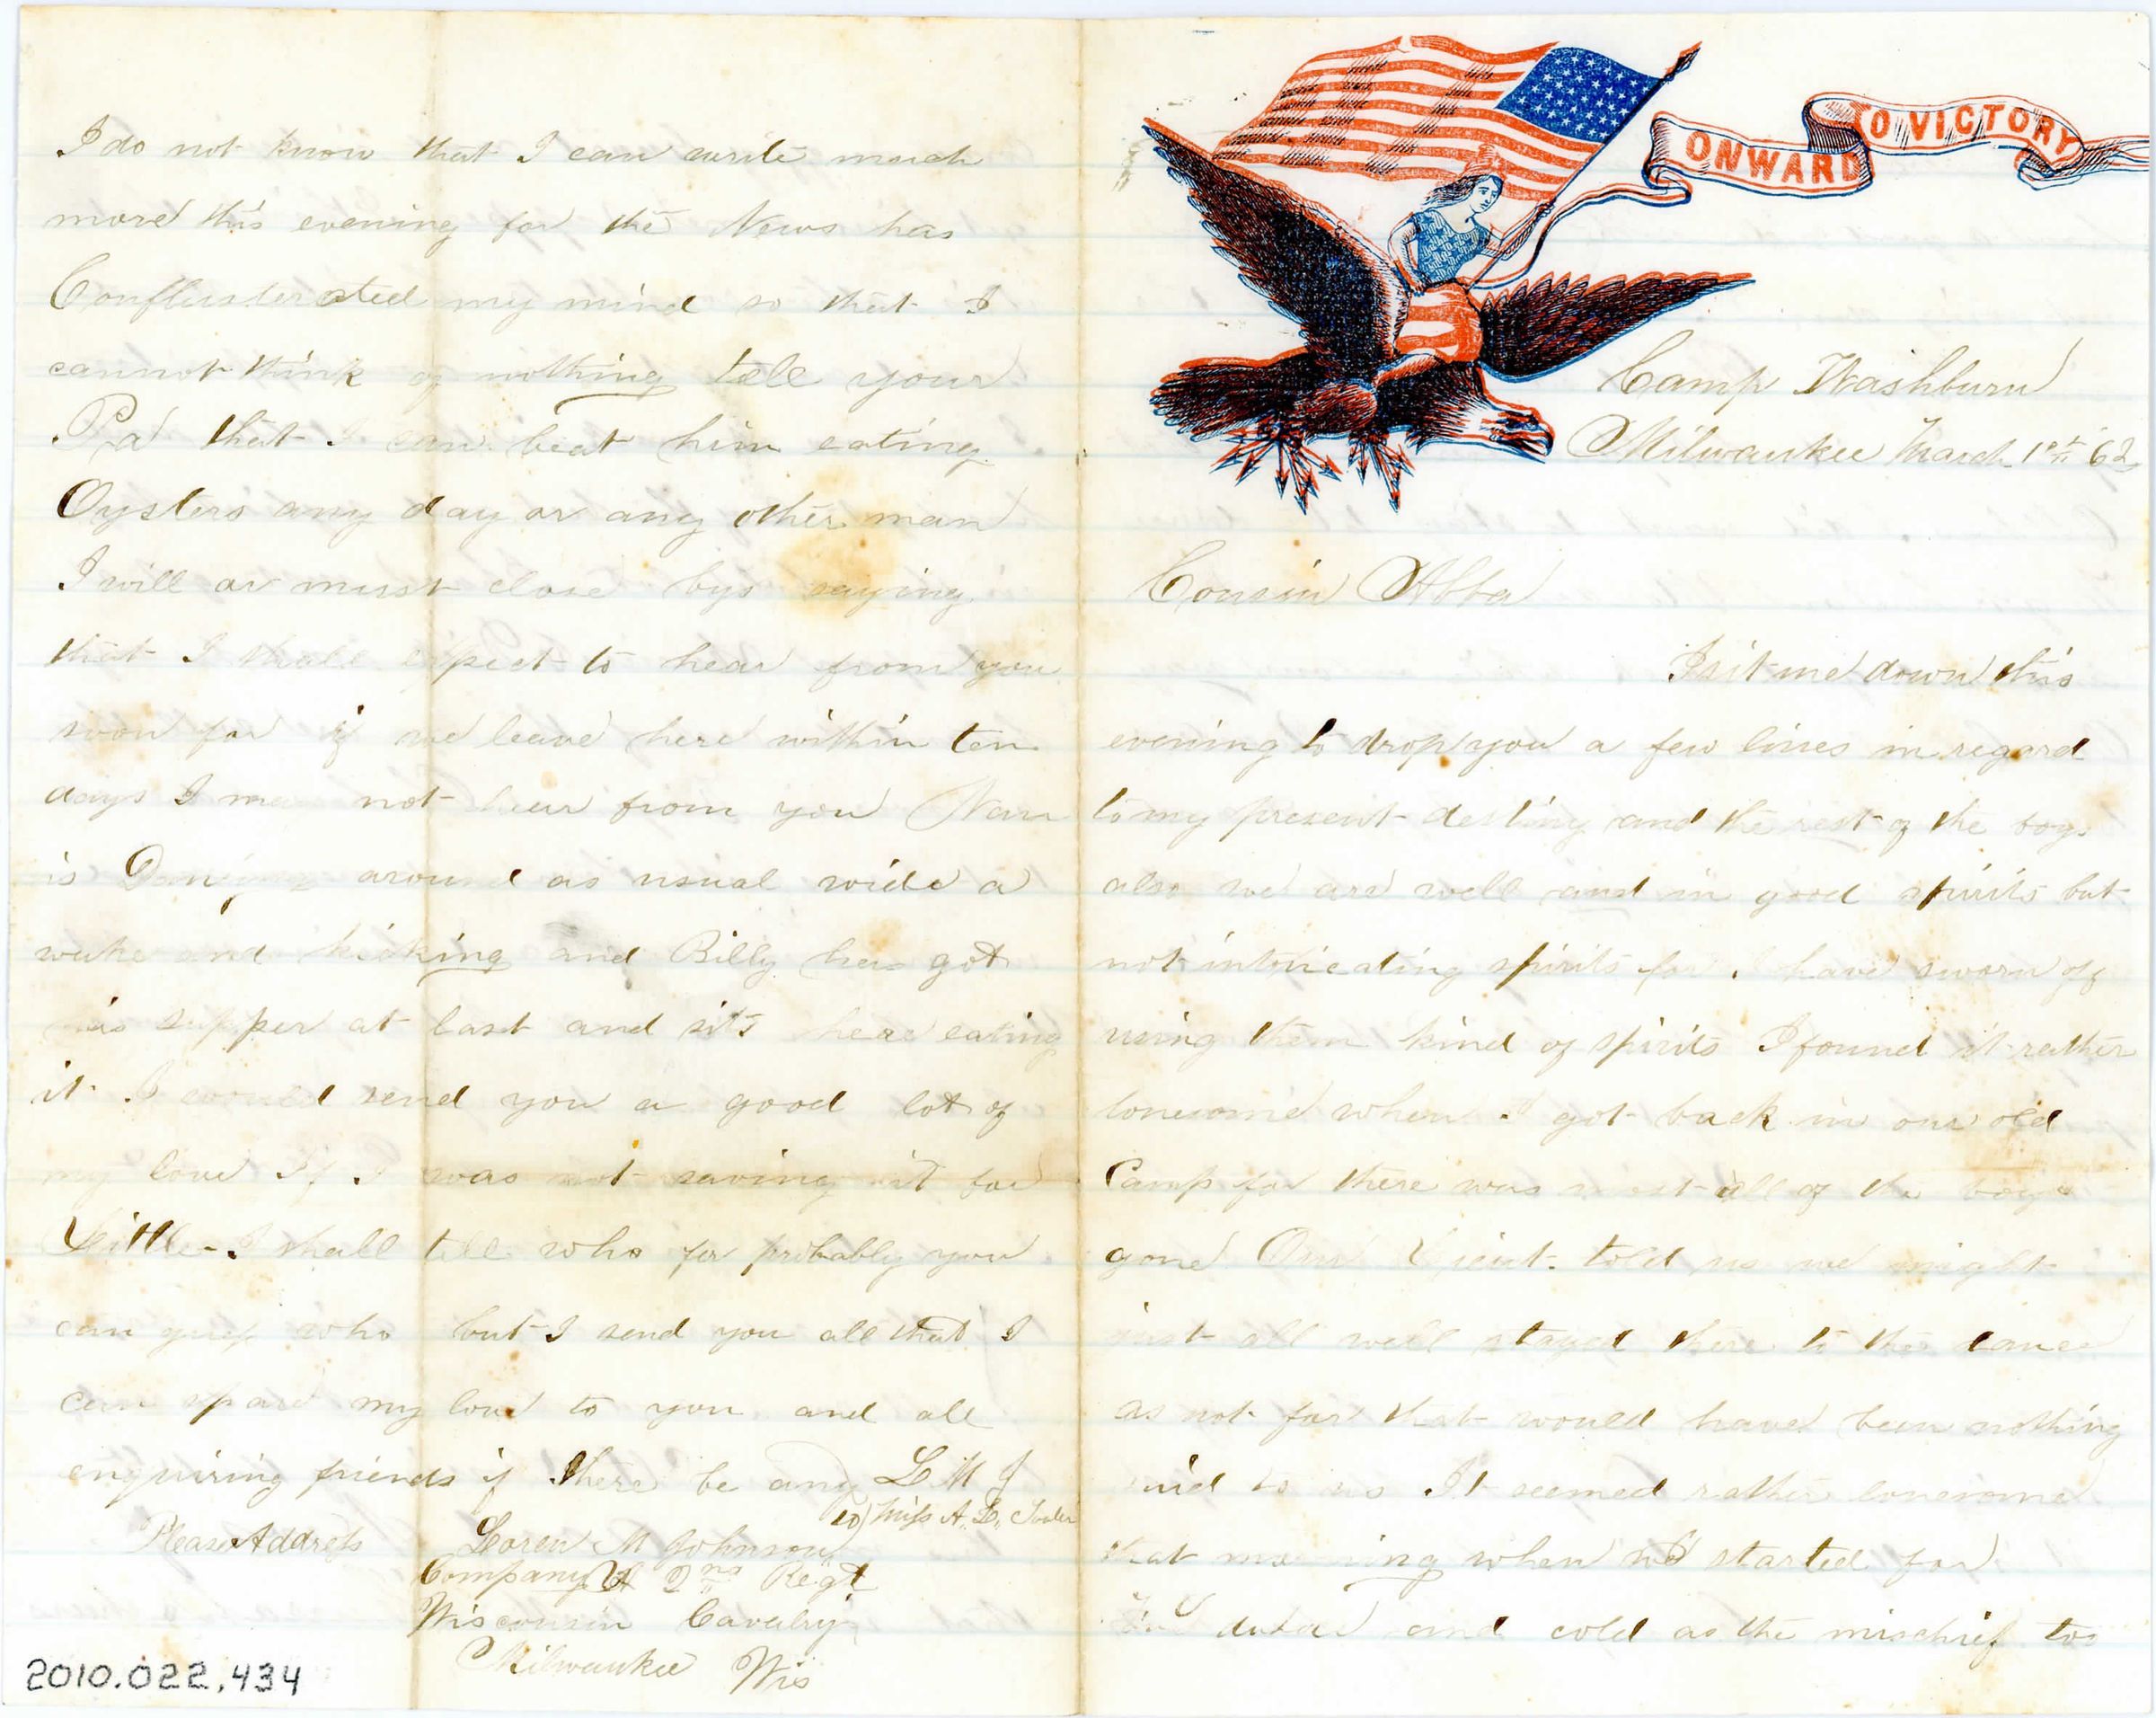 ONWARD TO VICTORY
Camp Washburn
Milwaukee March 1st 62
Cousin Abba
I sit me down this
evening to drop you a few lines in regard
to my present destiny and the rest of the boys
also we are well and in good spirits but
not intoxicating spirits for I have sworn off
using them kind of spirits I found it rather
lonesome when I got back in our old
Camp for there was most all of the boys
gone Our Lieut. told us we might
just all well stayed there to the dance
as not for that would have been nothing
said to us It seemed rather lonesome
that morning when we started for
and cold as the mischief too
I do not know that I can write much
more this evening for the News has
Conflusterated my mind so that I
cannot think of nothing tell your
Pa that I can beat him eating
Oysters any day or any other man
I will or must close bys saying
that I shall expect to hear from you
soon for if we leave here within ten
days I may not hear from you Van
is around as usual wide a
wake and kicking and Billy has got
his supper at last and sits here eating
it I would send you a good lot of
my love If I was not saving it for
Little - I shall tell who for probably you
can guess who but I send you all that I
can spare my love to you and all
enquiring friends if there be any L M J
to Miss A. L.
Please Address Loren M Johnson
Company A 2nd Regt
Wisconsin Cavalry
Milwaukee Wis
2010.022.434